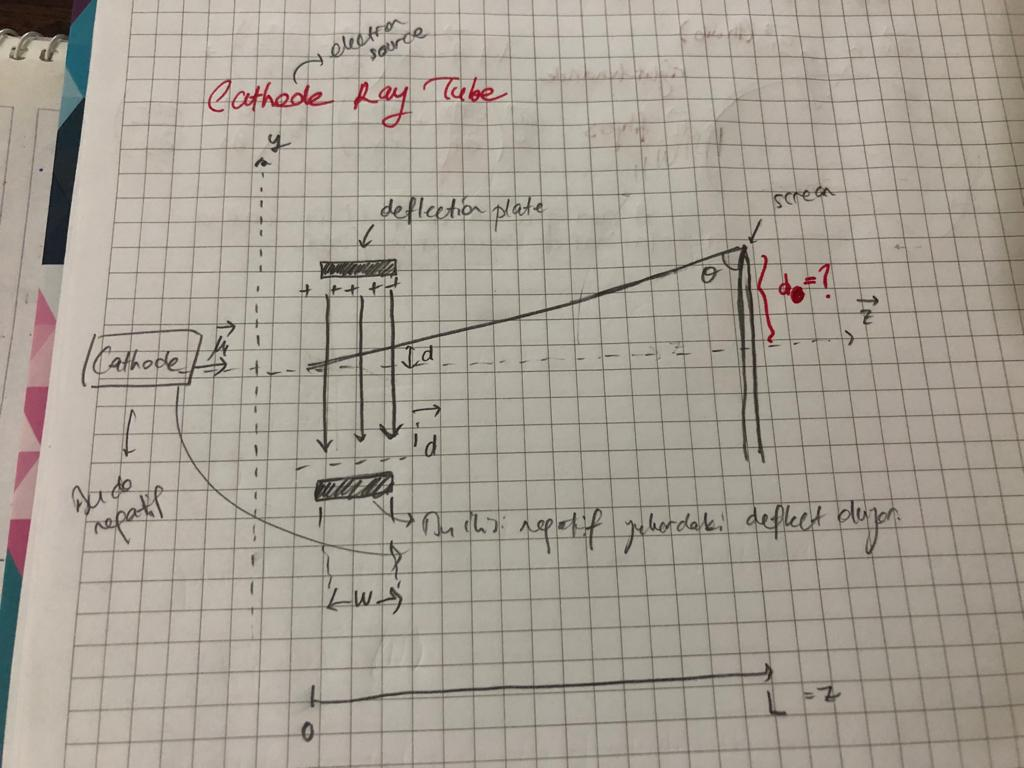 electron
source
Cathode Ray Tube
y
deflection plate
screen
+ + + + +
θ
d₀ = ?
z
Cathode
u
d
d
Bu da
negatif
Bu ikisi negatif yukardaki deflect oluyor.
W
0
L = z